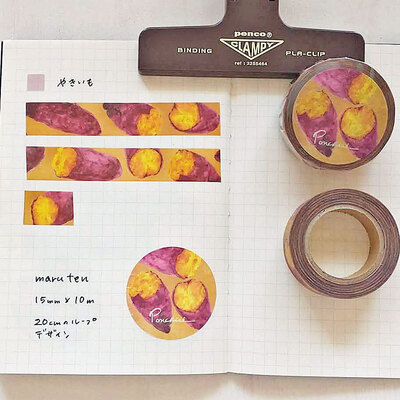 penco®
BINDING
CLAMPY
PLA-CLIP
ref : 3255464
やきいも
Ponchise
maru ten
15mm × 10m
20cmループ
デザイン